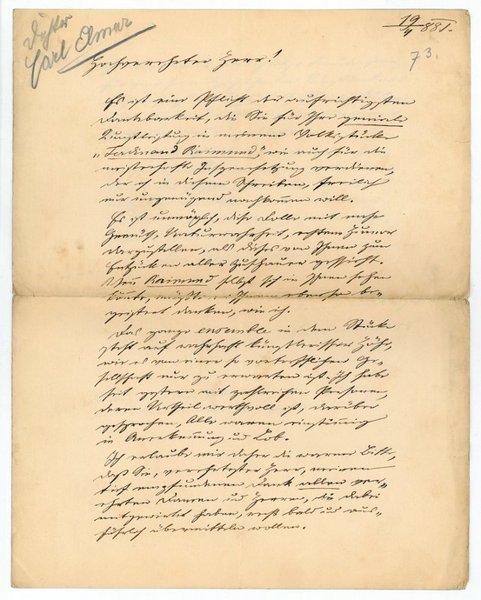 Dichter
Carl Elmar
19/4 881.
73.
Hochverehrter Herr!
Es ist eine Pflicht der aufrichtigsten
Dankbarkeit, die Sie für Ihre geniale
Kunstleistung in meinem Volksstücke
"Ferdinand Raimund", wie auch für die
meisterhafte Inszenesetzung verdienen,
der ich in diesem Schreiben, freilich
nur ungenügend nachkommen will.
Es ist unmöglich, diese Rolle mit mehr
Gemüth, Naturwahrheit, echtem Humor
darzustellen, als dieses von Ihnen zum
Entzücken aller Zuschauer geschieht.
Wenn Raimund selbst sich in Ihnen sehen
könnte, müßte er Ihnen ebenso be-
geistert danken, wie ich.
Das ganze ensemble in dem Stücke
steht auf wahrhaft künstlerischer Höhe,
wie es von einer so vortrefflichen Ge-
sellschaft nur zu erwarten ist. Ich habe
seit gestern mit zahlreichen Personen,
deren Urtheil werthvoll ist, darüber
gesprochen, Alle waren einstimmig
in Anerkennung und Lob.
Ich erlaube mir daher die warme Bitte,
daß Sie, verehrtester Herr, meinen
tief empfundenen Dank allen ver-
ehrten Damen und Herren, die dabei
mitgewirkt haben, recht bald und aus-
führlich übermitteln wollen.